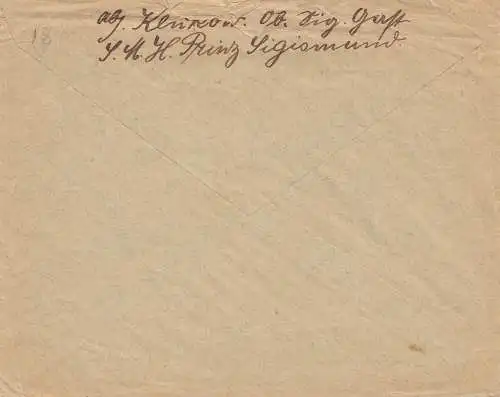 abs. Klukow. Ob. Sig. Gast
S. M. H. Prinz Sigismund.
18